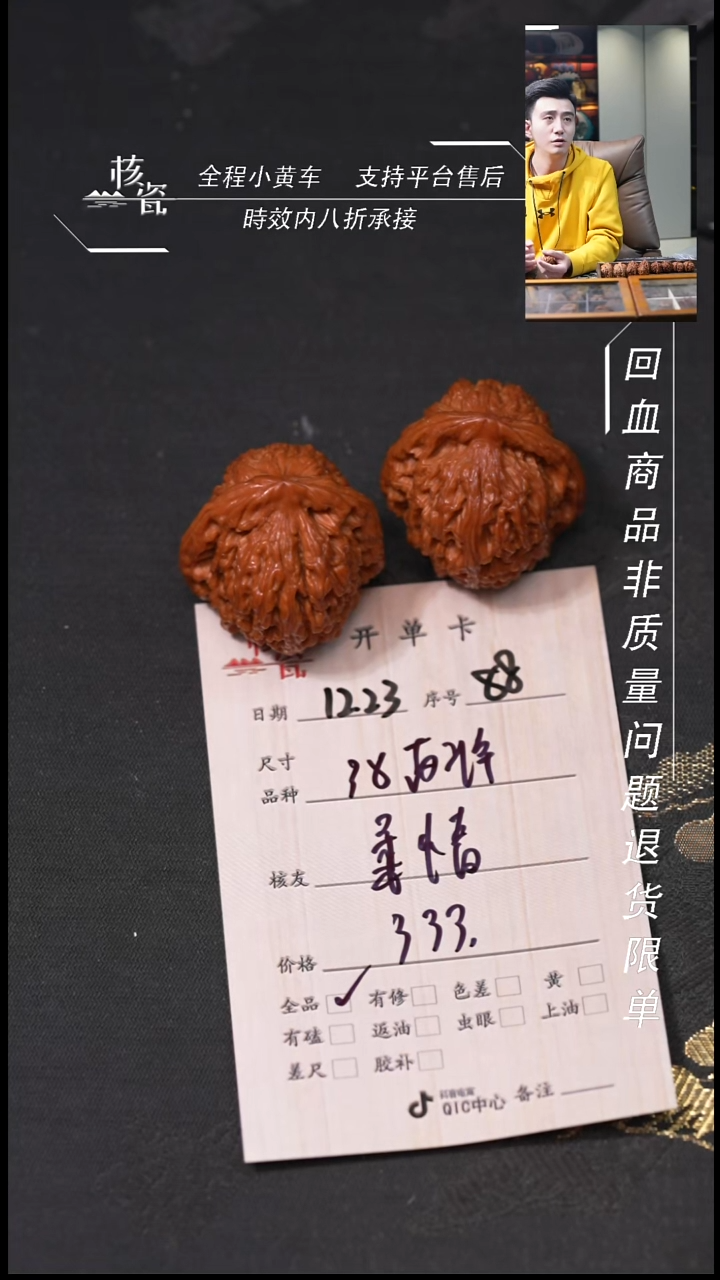 核瓷
全程小黄车 支持平台售后
時效内八折承接
回血商品非质量问题退货限单
开单卡
日期 1223 序号 88
尺寸
品种 38
核友
价格 333.
全品 ✓ 有修 色差 黄
有磕 返油 虫眼 上油
差尺 胶补
抖音电商
QIC中心 备注